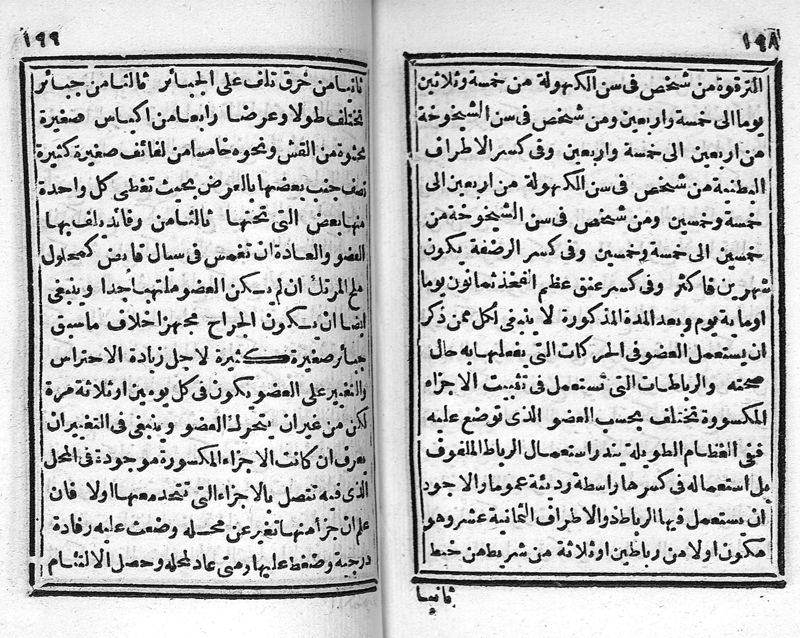 ١٩٨
الترقوة من شخص فى سن الكهولة من خمسة وثلاثين
يوما الى خمسة واربعين ومن شخص فى سن الشيخوخة
من اربعين الى خمسة واربعين وفى كسر الاطراف
البطنية من شخص فى سن الكهولة من اربعين الى
خمسة وخمسين ومن شخص فى سن الشيخوخة من
خمسين الى خمسة وخمسين وفى كسر الرضفة يكون
شهرين فاكثر وفى كسر عنق عظم الفخذ ثمانون يوما
او ماية يوم وبعد المدة المذكورة لا ينبغى لكل ممن ذكر
ان يستعمل العضو فى الحركات التى يفعلها به حال
صحته والرباطات التى تستعمل فى تثبيت الاجزاء
المكسورة تختلف بحسب العضو الذى توضع عليه
فنى العظام الطويلة يندر استعمال الرباط الملفوف
بل استعماله فى كسرها واسطة رديئة عموما والاجود
ان يستعمل فيها الرباط ذو الاطراف الثمانية عشر وهو
مكون اولا من رباطين او ثلاثة من شريط من خيط
ثانيا
١٩٩
ثانيا من خرق تلف على الجبائر ثالثا من جبائر
تختلف طولا وعرضا رابعا من اكياس صغيرة
محشوة من القش ونحوه خامسا من لفائف صغيرة كثيرة
نصف جنب بعضها بالعرض بحيث تغطى كل واحدة
منها بعض التى تحتها ثالثا من رفائد يلف بها
العضو والعادة ان تغمس فى سيال قابض كمحلول
ملح المرتك ان لم يكن العضو ملتهبا جدا وينبغى
ايضا ان يكون الجراح مجهزا خلاف ما سبق
جبائر صغيرة كثيرة لاجل زيادة الاحتراس
والتغيير على العضو يكون فى كل يومين او ثلاثة مرة
لكن من غير ان يتحرك العضو وينبغى فى التغيير ان
يعرف ان كانت الاجزاء المكسورة موجودة فى المحل
الذى فيه تتصل بالاجزاء التى تتحد معها اولا فان
علم ان جزأ منها تغير عن محله وضعت عليه رفادة
درجية وضغط عليها ومتى عاد لمحله وحصل الالتئام